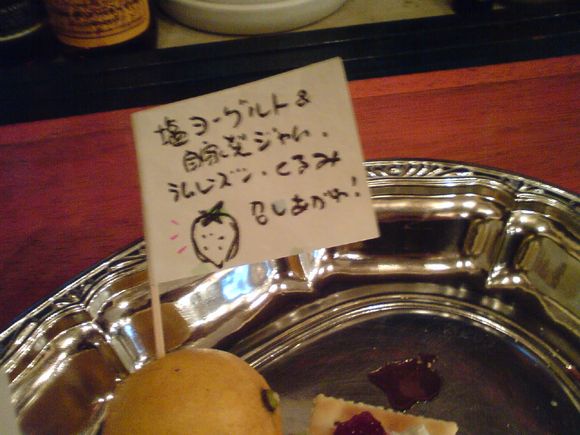 塩ヨーグルト&
自家製ジャム、
ラムレーズン、くるみ
召しあがれ!